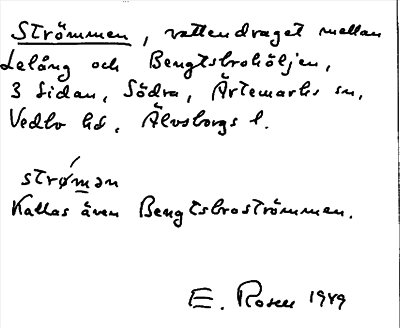 Strömmen, vattendraget mellan
Lelång och Bengtsbrohöljen,
3 sidan, Södra, Ärtemarks sn,
Vedbo hd, Älvsborgs l.
strǿmən
Kallas även Bengtsbroströmmen.
E. Rosen 1949